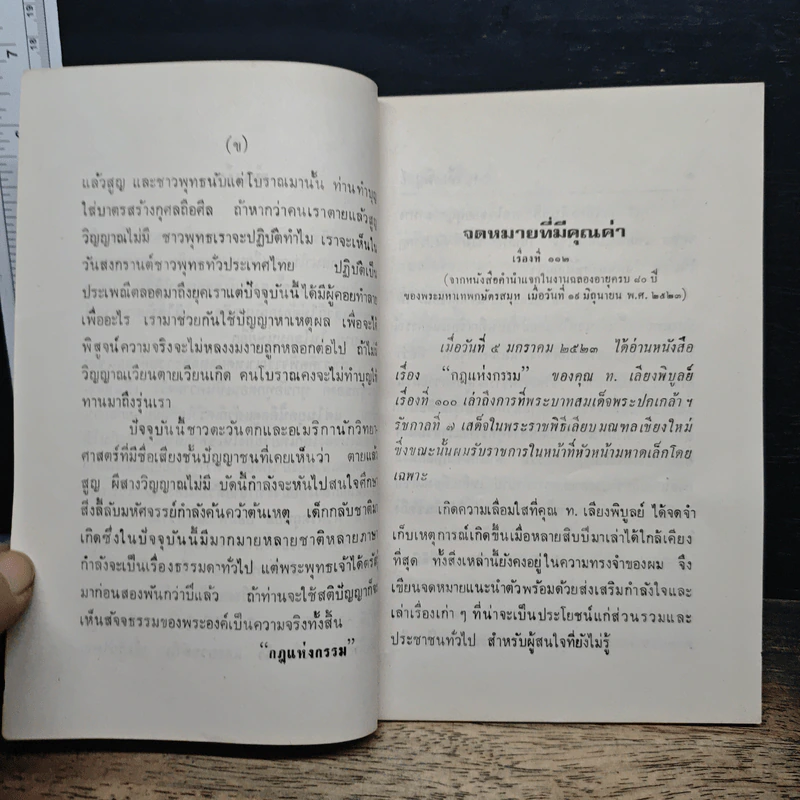 (ข)
แล้วสูญ และชาวพุทธนับแต่โบราณมานั้น ท่านทำบุญ
ใส่บาตรสร้างกุศลถือศีล ถ้าหากว่าคนเราตายแล้วสูญ
วิญญาณไม่มี ชาวพุทธเราจะปฏิบัติทำไม เราจะเห็นใน
วันสงกรานต์ชาวพุทธทั่วประเทศไทย ปฏิบัติเป็น
ประเพณีตลอดมาถึงยุคเราแต่ปัจจุบันนี้ ได้มีผู้คอยทำลาย
เพื่ออะไร เรามาช่วยกันใช้ปัญญาหาเหตุผล เพื่อจะให้
พิสูจน์ความจริงจะไม่หลงงมงายถูกหลอกต่อไป ถ้าไม่มี
วิญญาณเวียนตายเวียนเกิด คนโบราณคงจะไม่ทำบุญให้
ทานมาถึงรุ่นเรา
ปัจจุบันนี้ชาวตะวันตกและอเมริกานักวิทยา-
ศาสตร์ที่มีชื่อเสียงชั้นปัญญาชนที่เคยเห็นว่า ตายแล้ว
สูญ ผีสางวิญญาณไม่มี บัดนี้กำลังจะหันไปสนใจศึกษา
สิ่งลี้ลับมหัศจรรย์กำลังค้นคว้าต้นเหตุ เด็กกลับชาติมา
เกิดซึ่งในปัจจุบันนี้มีมากมายหลายชาติหลายภาษา
กำลังจะเป็นเรื่องธรรมดาทั่วไป แต่พระพุทธเจ้าได้ตรัส
มาก่อนสองพันกว่าปีแล้ว ถ้าท่านจะใช้สติปัญญาก็จะ
เห็นสัจจธรรมของพระองค์เป็นความจริงทั้งสิ้น
“กฎแห่งกรรม”
จดหมายที่มีคุณค่า
เรื่องที่ ๑๑๒
(จากหนังสือคำนำแจกในงานฉลองอายุครบ ๘๐ ปี
ของพระมหาเทพกษัตรสมุห เมื่อวันที่ ๑๙ มิถุนายน พ.ศ. ๒๕๒๓)
เมื่อวันที่ ๕ มกราคม ๒๕๒๓ ได้อ่านหนังสือ
เรื่อง “กฎแห่งกรรม” ของคุณ ท. เลียงพิบูลย์
เรื่องที่ ๑๐๐ เล่าถึงการที่พระบาทสมเด็จพระปกเกล้า ฯ
รัชกาลที่ ๗ เสด็จในพระราชพิธีเลียบมณฑลเชียงใหม่
ซึ่งขณะนั้นผมรับราชการในหน้าที่หัวหน้ามหาดเล็กโดย
เฉพาะ
เกิดความเลื่อมใสที่คุณ ท. เลียงพิบูลย์ ได้จดจำ
เก็บเหตุการณ์เกิดขึ้นเมื่อหลายสิบปีมาเล่าได้ใกล้เคียง
ที่สุด ทั้งสิ่งเหล่านี้ยังคงอยู่ในความทรงจำของผม จึง
เขียนจดหมายแนะนำตัวพร้อมด้วยส่งเสริมกำลังใจและ
เล่าเรื่องเก่า ๆ ที่น่าจะเป็นประโยชน์แก่ส่วนรวมและ
ประชาชนทั่วไป สำหรับผู้สนใจที่ยังไม่รู้
7
18
19